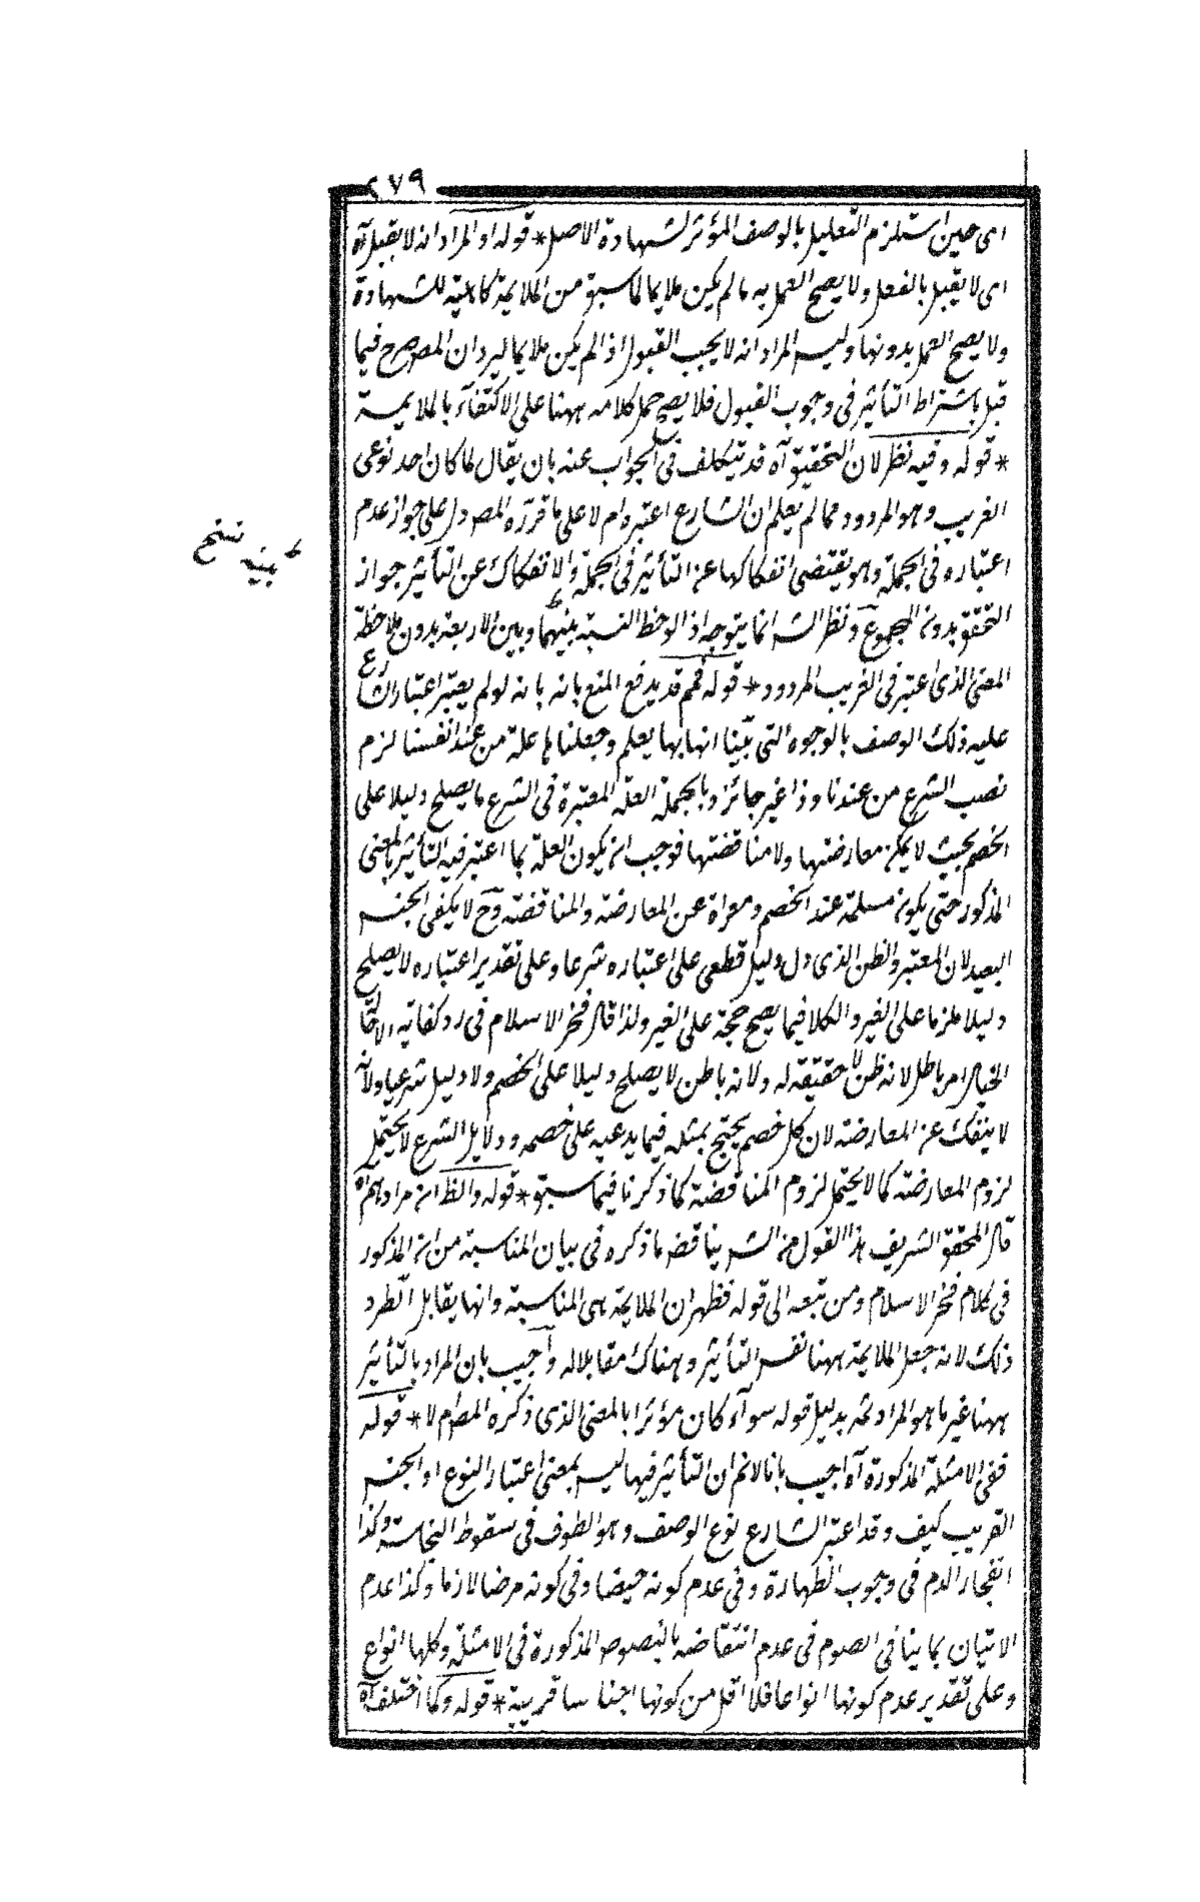 ٢٧٩
اى حين استلزم التعليل بالوصف المؤثر لشهادة الاصل * قوله او المراد انه لا يقبل آه
اى لا يقبل بالفعل ولا يصح العمل به ما لم يكن ملايما لما سبق من الملايمة كاهلية للشهادة
ولا يصح العمل بدونها وليس المراد انه لا يجب القبول اذا لم يكن ملايما ليرد ان المص صرح فيما
قبل باشتراط التأثير فى وجوب القبول فلا يصح حمل كلامه ههنا على الاكتفاء بالملايمة
* قوله وفيه نظر لان التحقيق آه قد يتكلف فى الجواب عنه بان يقال لما كان احد نوعى
الغريب وهو المردود مما لم يعلم ان الشارع اعتبره ام لا على ما قرره المص دل على جواز عدم
اعتباره فى الجملة وهو يقتضى انفكاكها عن التأثير فى الجملة والانفكاك عن التأثير جواز
التحقق بدون المجموع ونظر الش انما يتوجه اذا لوحظ النسبة بينهما وبين الاربعة بدون ملاحظة
بينه نسخ
المعنى الذى اعتبر فى الغريب المردود * قوله فمم قد يدفع المنع بانه بانه لو لم يعتبر اعتبار الشارع
عليه ذلك الوصف بالوجوه التى بينا انها بها يعلم وجعلنا ها علة من عند انفسنا لزم
نصب الشرع من عندنا وذا غير جائز وبالجملة العلة المعتبرة فى الشرع ما يصلح دليلا على
الخصم بحيث لا يمكن معارضتها ولا مناقضتها فوجب ان يكون العلة بما اعتبر فيه التأثير بالمعنى
المذكور حتى يكون مسلمة عند الخصم ومعراة عن المعارضة والمناقضة وح لا يكفى الجنس
البعيد لان المعتبر والظن الذى دل دليل قطعى على اعتباره شرعا وعلى تقدير اعتباره لا يصلح
دليلا ملزما على الغير والكلا فيما يصح حجة على الغير ولذا قال فخر الاسلام فى رد كفاية الاخالة
الخيال امر باطل لانه ظن لا حقيقة له ولانه باطن لا يصلح دليلا على الخصم ولا دليل شرعيا ولانه
لا ينفك عن المعارضة لان كل خصم يحتج بمثله فيما يدعيه على خصمه ودلايل الشرع لا يحتمل
لزوم المعارضة كما لا يحتمل لزوم المناقضة كما ذكرنا فيما سبق * قوله والظ ان مرادهم آه
قال المحقق الشريف هذا القول من الش يناقض ما ذكره فى بيان المناسبة من ان المذكور
فى كلام فخر الاسلام ومن تبعه الى قوله فظهر ان الملايمة هى المناسبة وانها يقابل الطرد
ذلك لانه جعل الملايمة ههنا نفس التأثير وهناك مقابلا له واجيب بان المراد بالتأثير
ههنا غير ما هو المراد ثمه بدليل قوله سواء كان مؤثرا بالمعنى الذى ذكره المص ام لا * قوله
ففى الامثلة المذكورة آه اجيب بانا لانم ان التأثير فيها ليس بمعنى اعتبار النوع او الجنس
القريب كيف وقد اعتبر الشارع نوع الوصف وهو الطوف فى سقوط النجاسة وكذا
انفجار الدم فى وجوب الطهارة وفى عدم كونه حيضا وفى كونه مرضا لازما وكذا عدم
الاتيان بما ينافى الصوم فى عدم انتقاضه بالنصوص المذكورة فى الامثلة وكلها انواع
وعلى تقدير عدم كونها انواعا فلا اقل من كونها اجناسا قريبة * قوله وكما اختلف آه